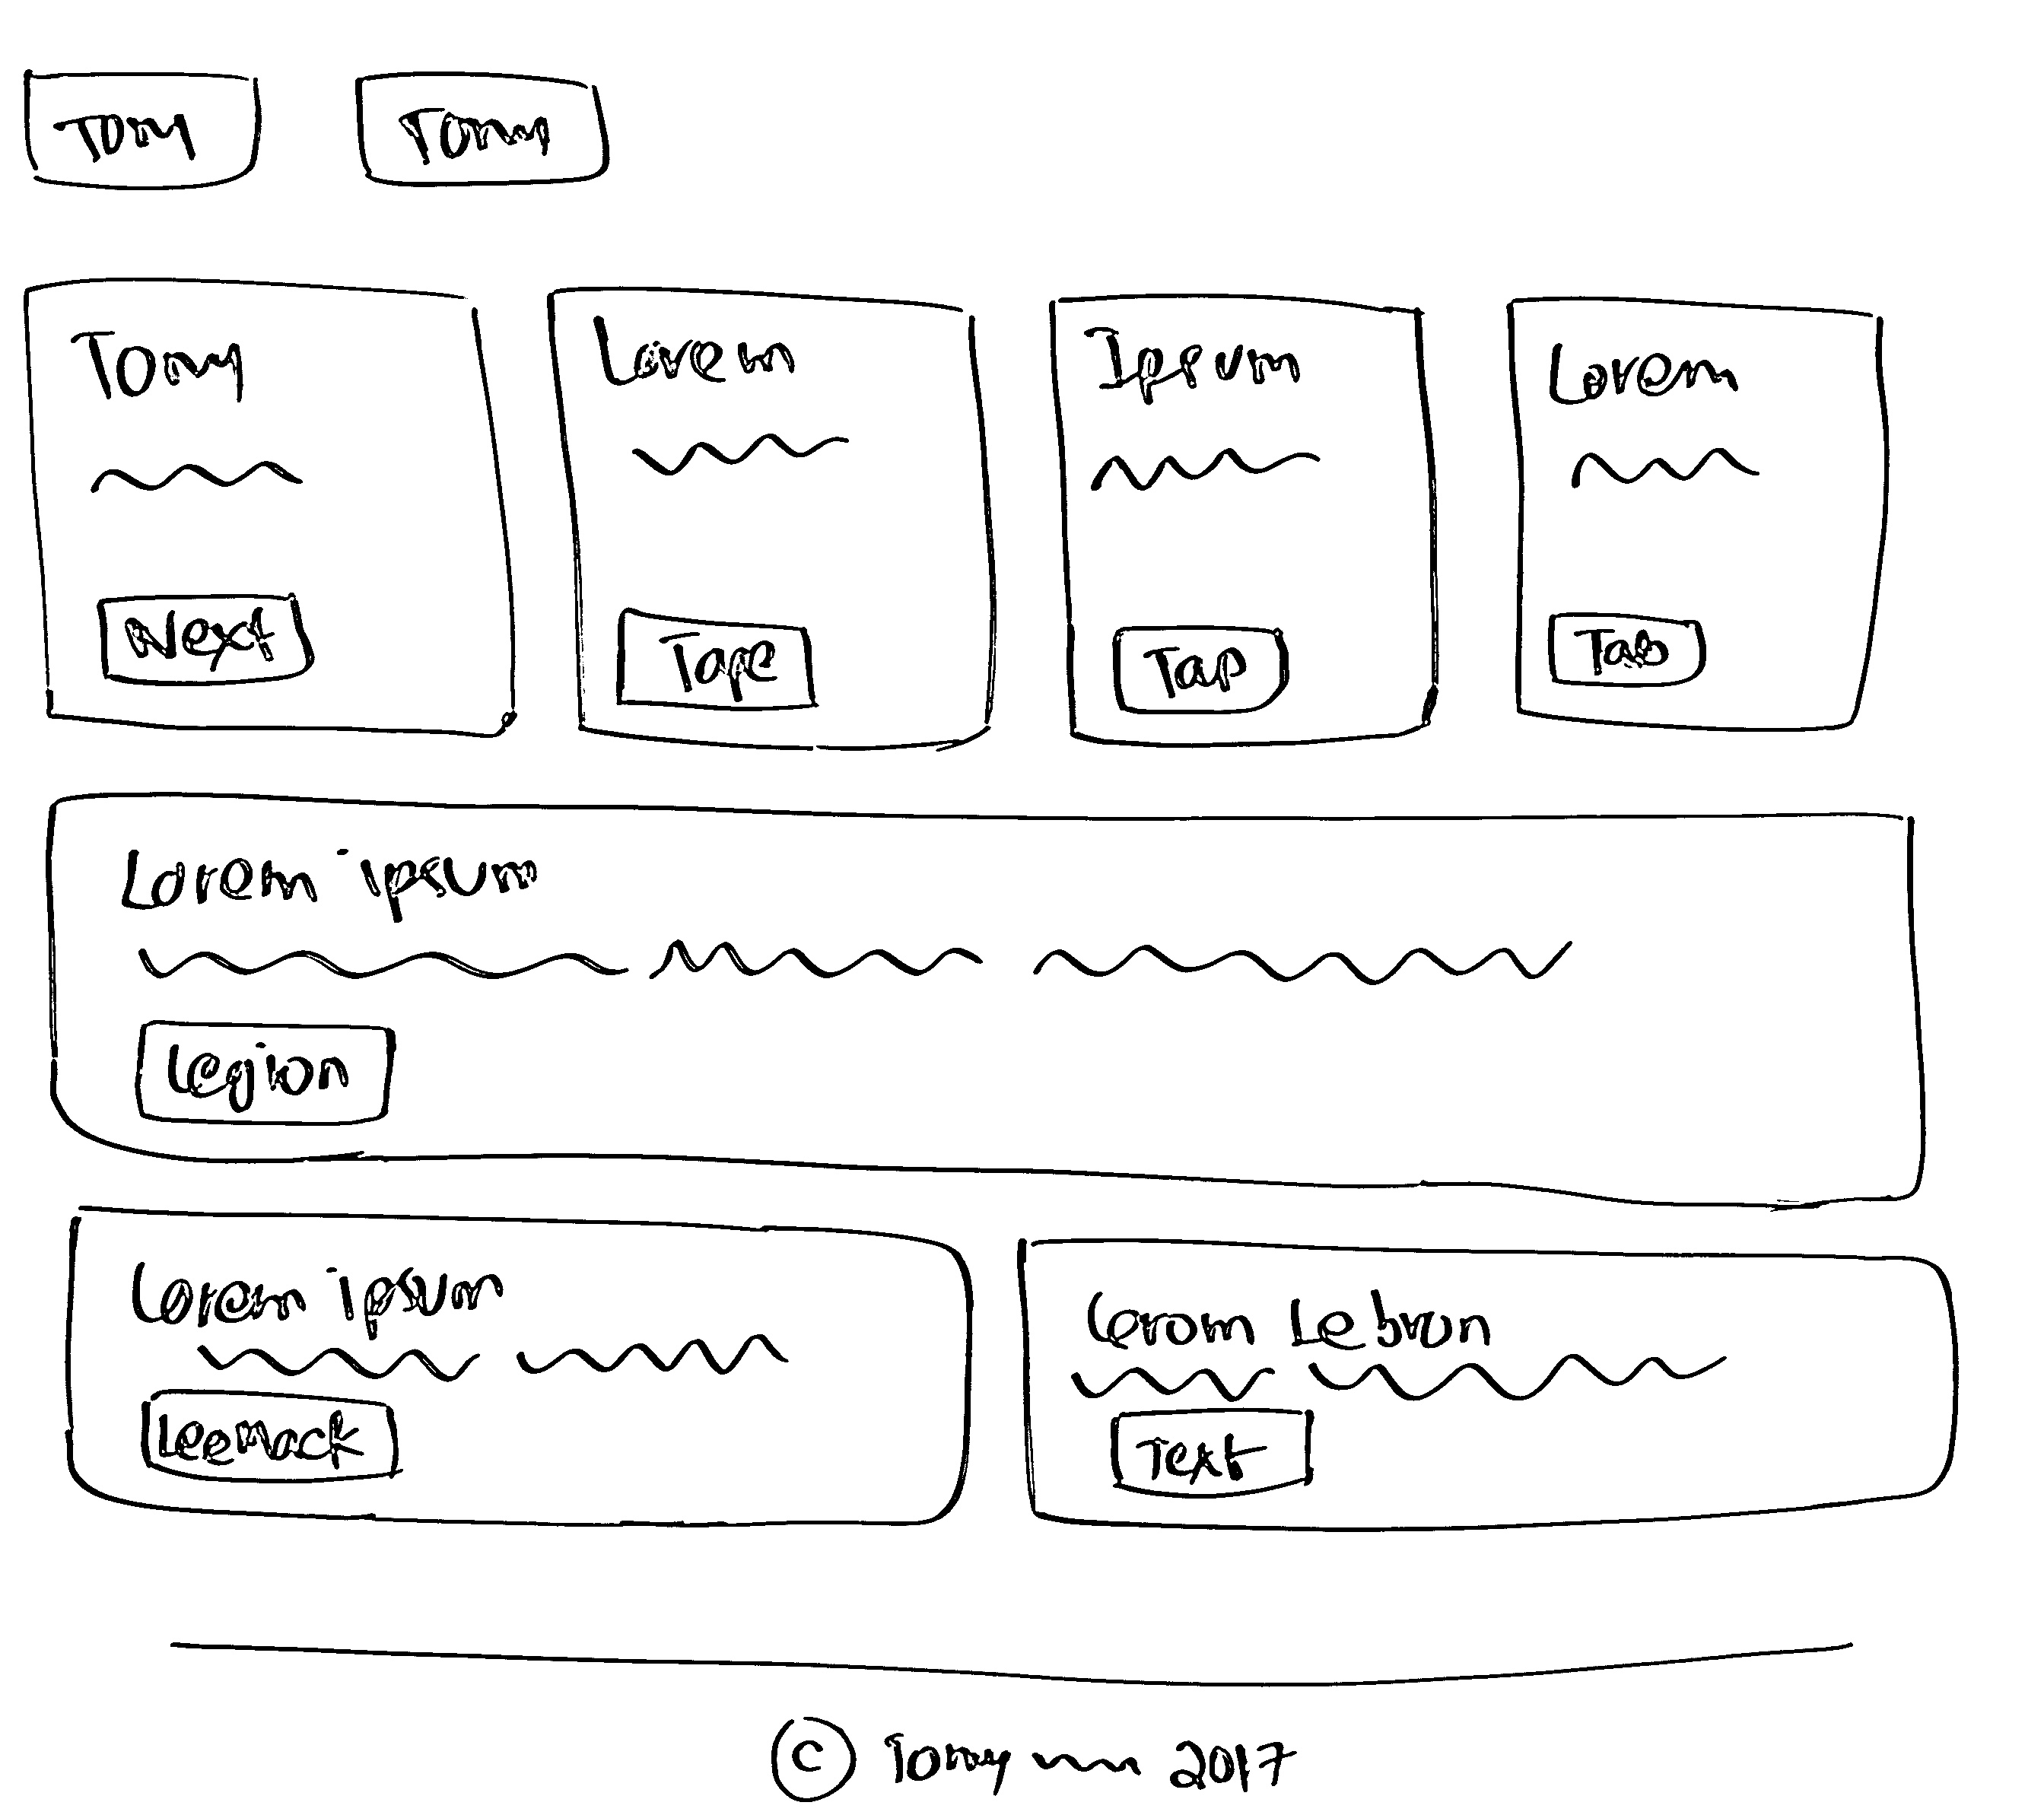 Tony
Tony
Tony
Next
Lorem
Tape
Ipsum
Tap
Lorem
Tab
Lorem ipsum
Legion
Lorem ipsum
LeeMack
Lerom Lebron
Text
© Tony 2017